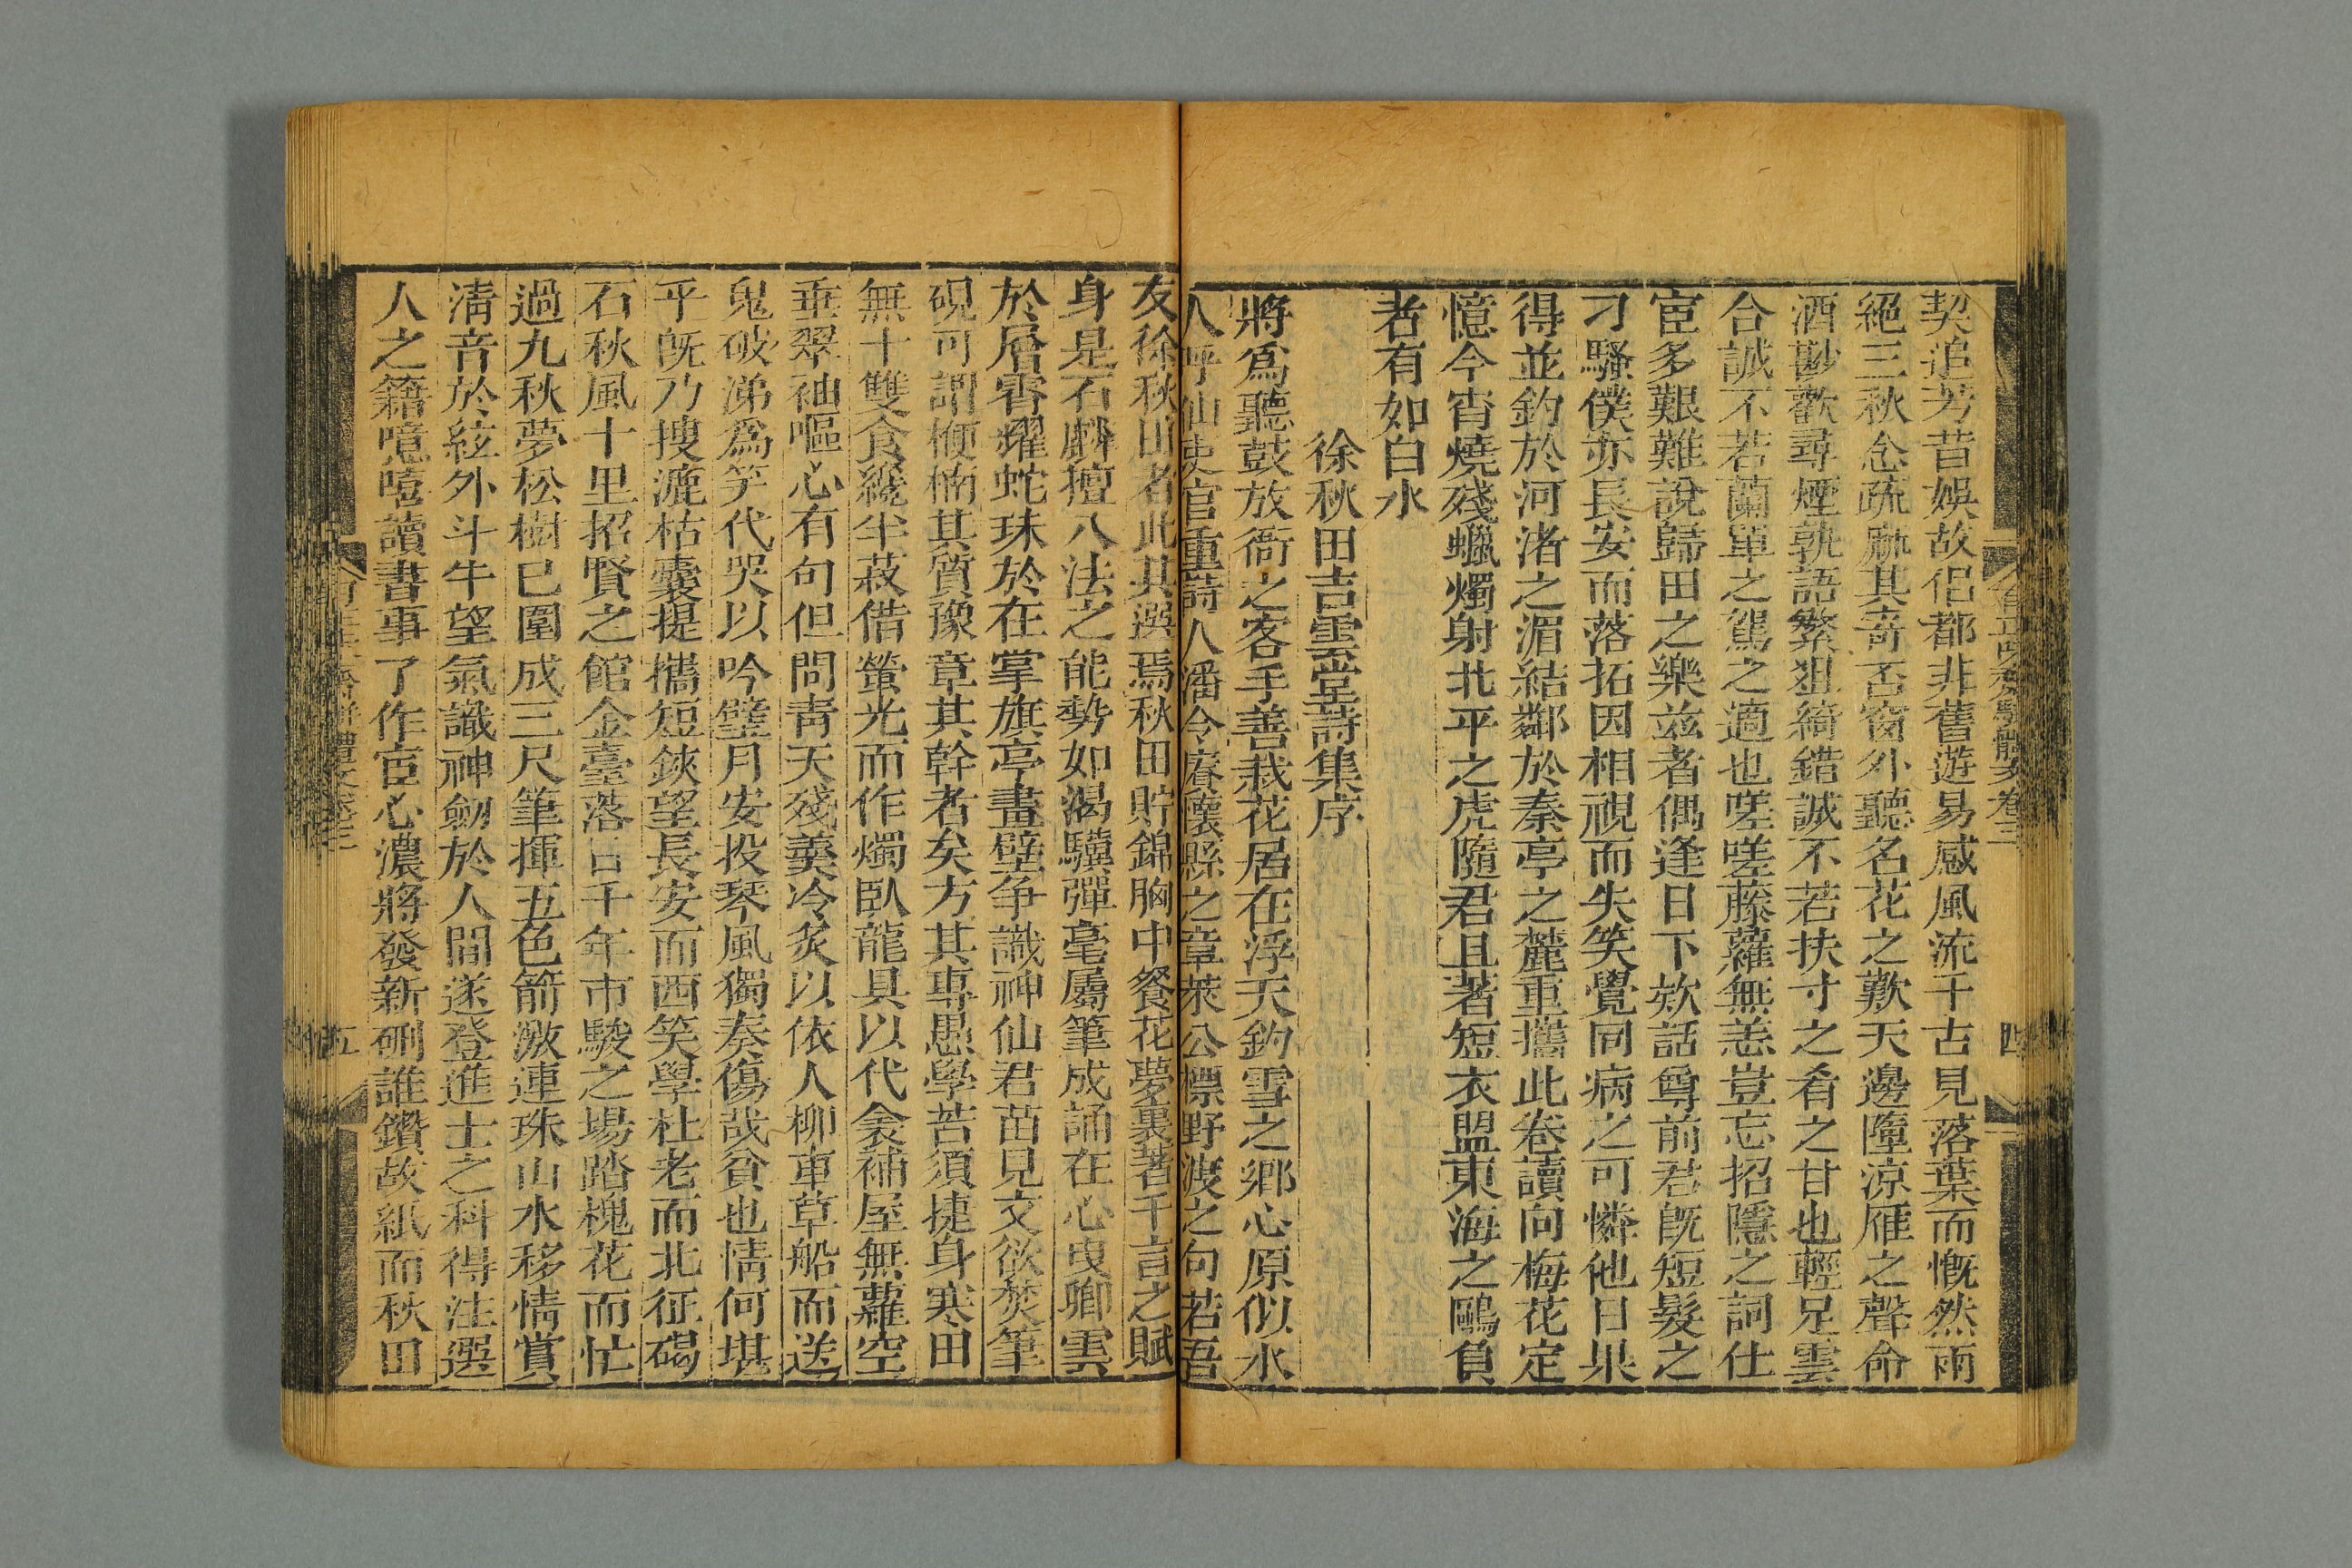 契追芳昔娛故侶都非舊遊易感風流千古見落葉而慨然雨
絕三秋念疏麻其奇否窗外聽名花之歎天邊墮涼雁之聲命
酒尠歡尋煙孰語繁狙綺錯誠不若扶寸之肴之甘也輕足雲
合誠不若蘭單之駕之適也嗟嗟藤蘿無恙豈忘招隱之詞仕
宦多艱難說歸田之樂茲者偶逢日下欸話尊前君旣短髮之
刁騷僕亦長安而落拓因相視而失笑覺同病之可憐他日果
得並釣於河渚之湄結鄰於秦亭之麓重攜此卷讀向梅花定
憶今宵燒殘蠟燭射北平之虎隨君且著短衣盟東海之鷗負
者有如白水
徐秋田吉雲堂詩集序
將爲聽鼓放衙之客手善栽花居在浮天釣雪之鄉心原似水
人呼仙吏官重詩人潘令廑懷縣之章萊公標野渡之句若吾
友徐秋田者此其選焉秋田貯錦胸中餐花夢裏著千言之賦
身是石麟擅八法之能勢如渴驥彈毫屬筆成誦在心曳卿雲
於層霄耀蛇珠於在掌旗亭畫壁爭識神仙君苗見文欲焚筆
硯可謂楩楠其質豫章其幹者矣方其專愚學苦須捷身寒田
無十雙食纔半菽借螢光而作燭臥龍具以代衾補屋無蘿空
垂翠袖嘔心有句但問靑天殘羹冷炙以依人柳車草船而送
鬼破涕爲笑代哭以吟璧月安投琴風獨奏傷哉貧也情何堪
乎旣乃搜漉枯囊提攜短鋏望長安而西笑學杜老而北征碣
石秋風十里招賢之館金臺落日千年市駿之場踏槐花而忙
過九秋夢松樹已圍成三尺筆揮五色箭激連珠山水移情賞
淸音於絃外斗牛望氣識神劒於人間遂登進士之科得注選
人之籍噫嘻讀書事了作宦心濃將發新硎誰鑽故紙而秋田